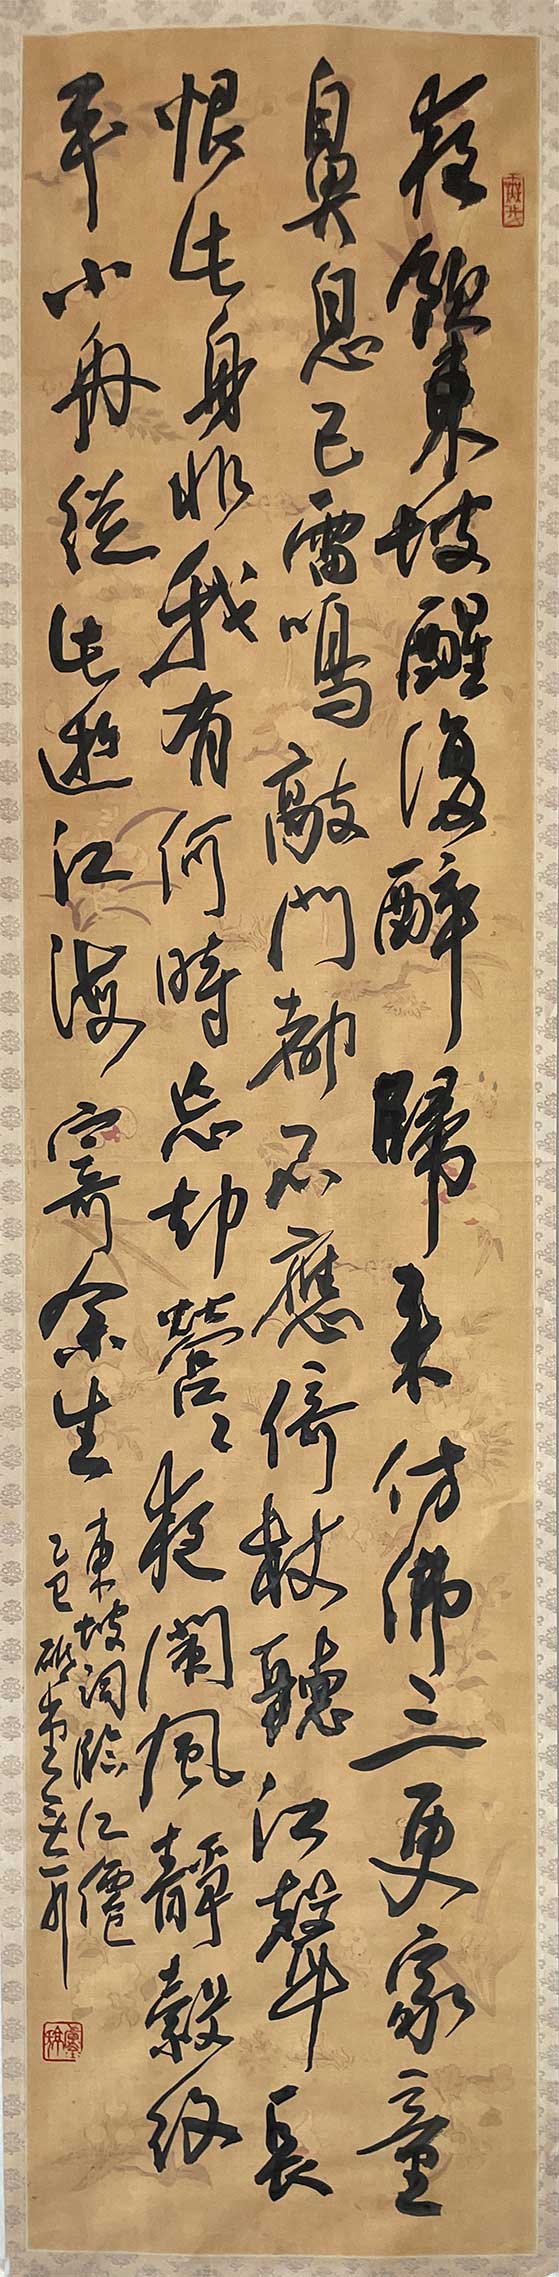 夜飲東坡醒復醉歸來仿佛三更家童
鼻息已雷鳴敲門都不應倚杖聽江聲長
恨此身非我有何時忘却營〻夜闌風靜縠紋
平小舟從此逝江海寄余生
東坡詞臨江僊
乙巳